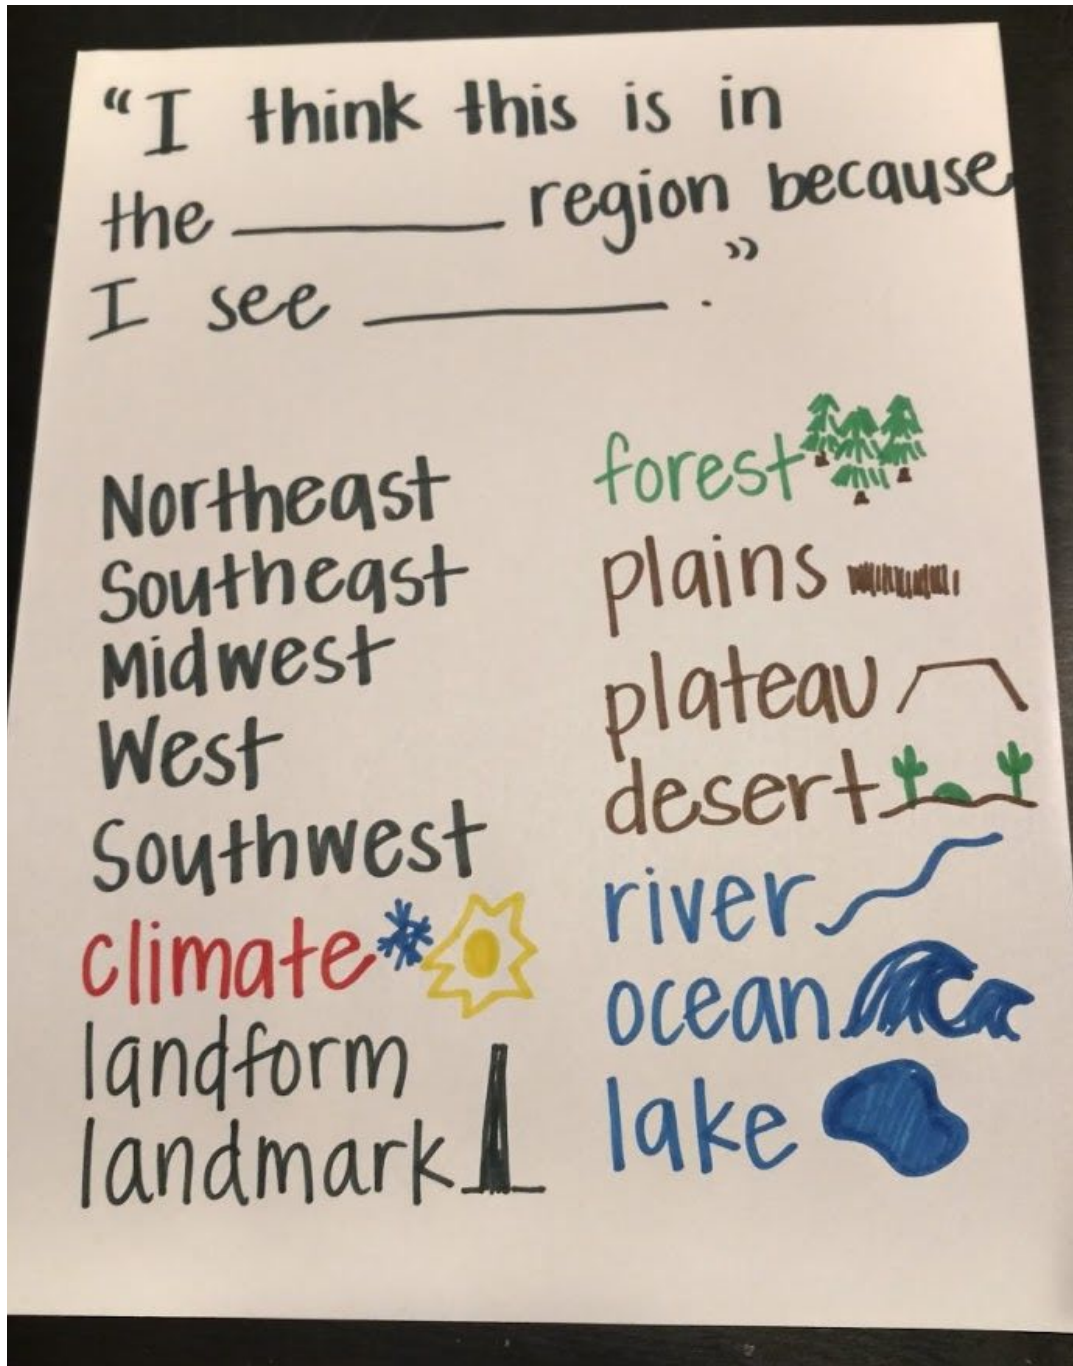 “I think this is in
the ________ region because
I see _________ .”
Northeast
Southeast
Midwest
West
Southwest
climate
landform
landmark
forest
plains
plateau
desert
river
ocean
lake